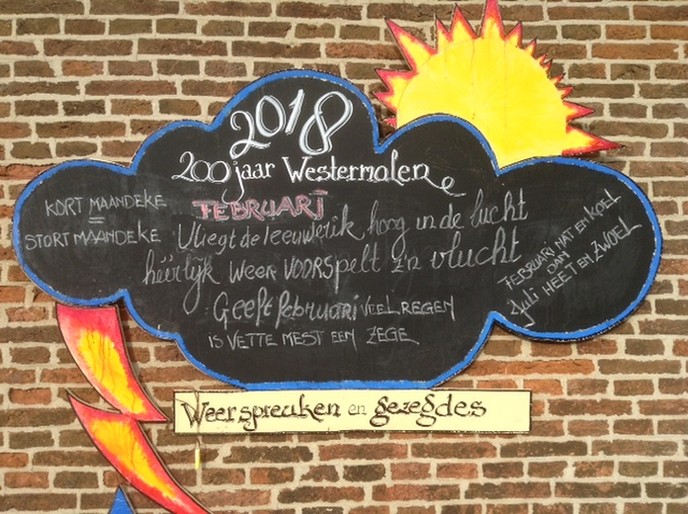 2018
200 jaar Westermolen
FEBRUARI
KORT MAANDEKE
=
STORT MAANDEKE
Vliegt de leeuwerik hoog in de lucht
héérlijk weer VOORSPELT z'n vlucht
Geeft februari VEEL REGEN
IS VETTE MEST EEN ZEGE
FEBRUARI NAT EN KOEL
DAN
Juli HEET EN ZWOEL
Weerspreuken en gezegdes